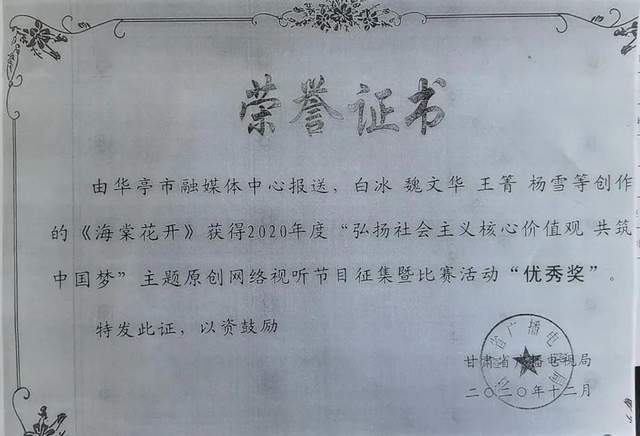 荣誉证书
由华亭市融媒体中心报送，白冰 魏文华 王箐 杨雪等创作
的《海棠花开》获得2020年度“弘扬社会主义核心价值观 共筑
中国梦”主题原创网络视听节目征集暨比赛活动“优秀奖”。
特发此证，以资鼓励
甘肃省广播电视局
二〇二〇年十二月